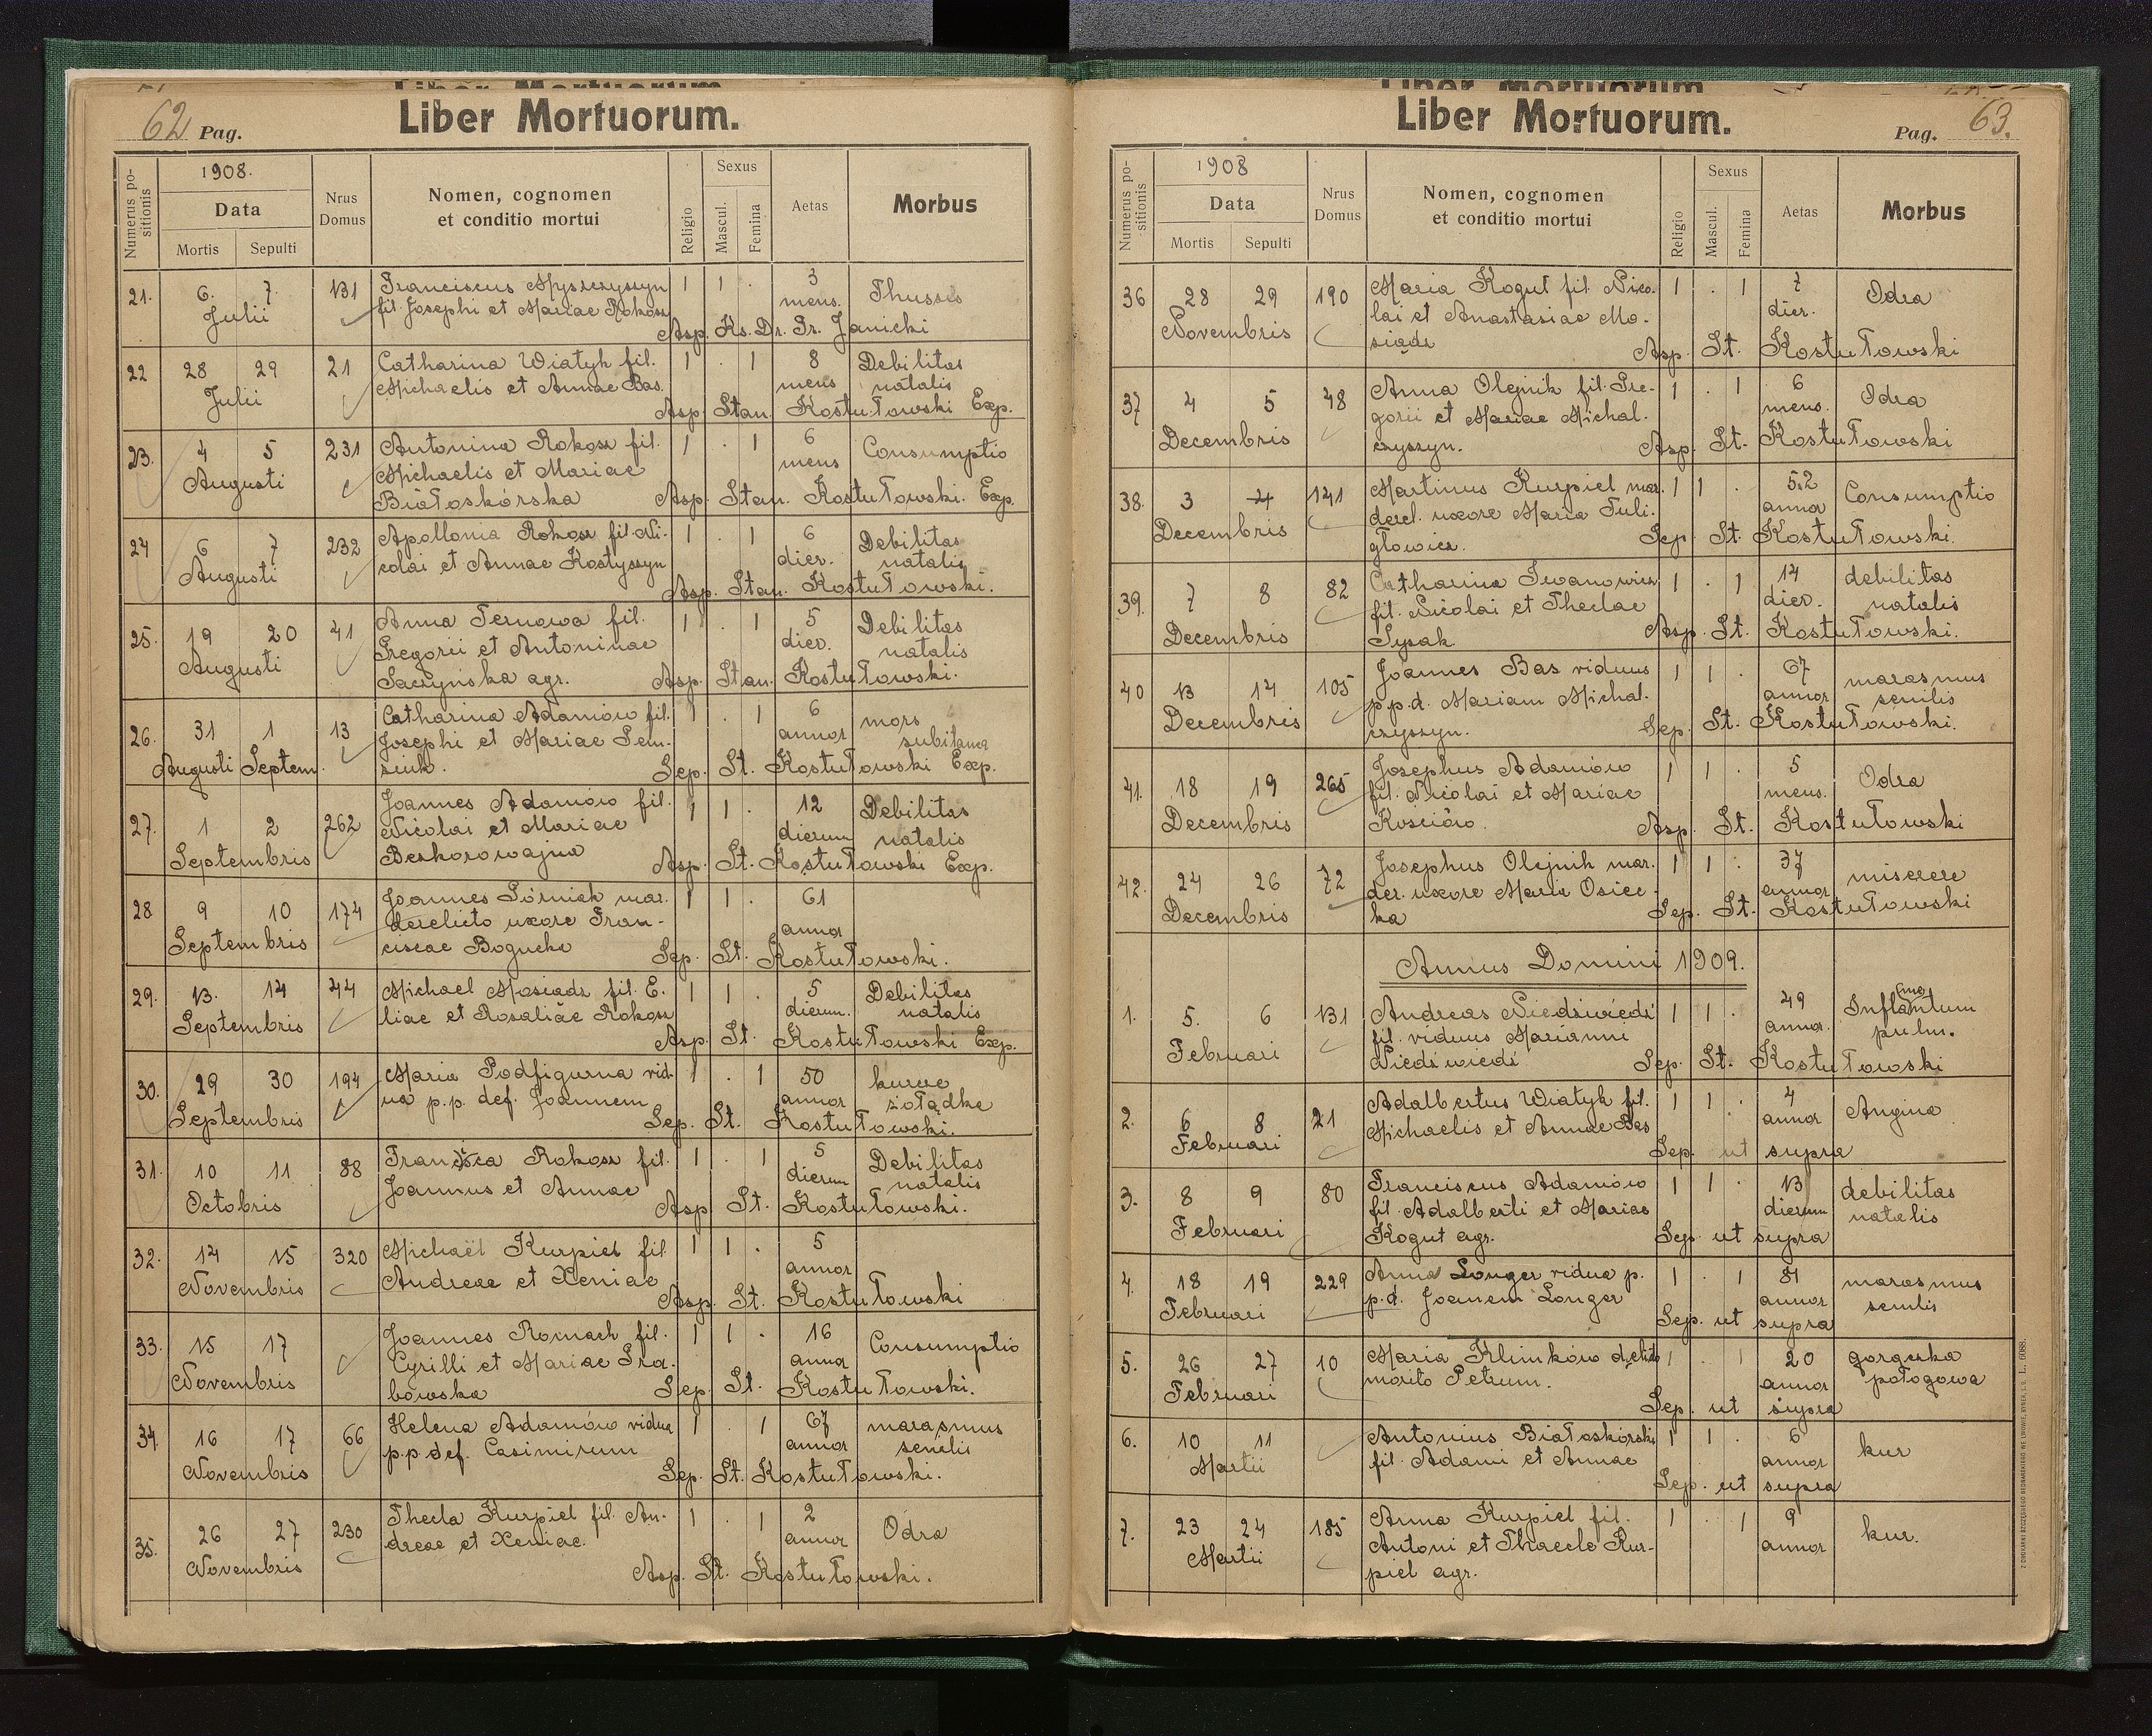 62 Pag.
Liber Mortuorum.
Numerus positionis
1908.
Data
Mortis Sepulti
Nrus Domus
Nomen, cognomen
et conditio mortui
Religio
Sexus
Mascul. Femina
Aetas
Morbus
21. 6. 7. 131 Franciscus Myszczyszyn 1 1 . 3 Thussis
Julii fil. Josephi et Mariae Rokosz mens.
Asp. Ks. Dr. Fr. Janicki
22 28 29 21 Catharina Wiatyk fil. 1 . 1 8 Debilitas
Julii Michaelis et Annae Bas. mens natalis
Asp. Stan. Kostutowski Exp.
23. 4 5 231 Antonina Rokosz fil. 1 . 1 6 Consumptio
Augusti Michaelis et Mariae mens
Białoskórska Asp. Stan. Kostułowski. Exp.
24 6 7 232 Apollonia Rokosz fil. Ni- 1 . 1 6 Debilitas
Augusti colai et Annae Kostyszyn dier. natalis
Asp. Stan. Kostułowski.
25. 19 20 41 Anna Ternowa fil. 1 . 1 5 Debilitas
Augusti Gregorii et Antoninae dier. natalis
Saczyńska agr. Asp. Stan. Kostułowski.
26. 31 1 13 Catharina Adamów fil. 1 . 1 6 mors
Augusti Septem. Josephi et Mariae Sem- annor subitanea
ziuk. Sep. St. Kostułowski Exp.
27. 1 2 262 Joannes Adamów fil. 1 1 . 12 Debilitas
Septembris Nicolai et Mariae dierum natalis
Beskorowajna Asp. St. Kostułowski Exp.
28 9 10 174 Joannes Górniak mar. 1 1 . 61
Septembris derelicto uxore Fran- annor
ciscae Bogucka Sep. St. Kostułowski.
29. 13. 14 44 Michael Mosiądz fil. E- 1 1 . 5 Debilitas
Septembris liae et Rosaliae Rokosz dierum. natalis
Asp. St. Kostułowski Exp.
30. 29 30 194 Maria Podfigurna vid- 1 . 1 50 kurcze
Septembris ua p.p. def. Joannem annor żołądka
Sep. St. Kostułowski.
31. 10 11 88 Francisca Rokosz fil. 1 . 1 5 Debilitas
Octobris Joannus et Annae dierum natalis
Asp. St. Kostułowski.
32. 14 15 320 Michaël Kurpiel fil 1 1 . 5
Novembris Andreae et Xeniae annor
Asp. St. Kostułowski
33. 15 17 Joannes Romach fil. 1 1 . 16 Consumptio
Novembris Cyrilli et Mariae Gra- annor
bowska Sep. St. Kostułowski.
34. 16 17 66 Helena Adamów vidua 1 . 1 67 marasmus
Novembris p.p. def. Casimirum annor senilis
Sep. St. Kostułowski.
35. 26 27 230 Thecla Kurpiel fil. An- 1 . 1 2 Odra
Novembris dreae et Xeniae. annor
Asp. St. Kostułowski.
Liber Mortuorum.
Pag. 63.
Numerus positionis
1908
Data
Mortis Sepulti
Nrus Domus
Nomen, cognomen
et conditio mortui
Religio
Sexus
Mascul. Femina
Aetas
Morbus
36 28 29 190 Maria Kogut fil. Nico- 1 . 1 7 Odra
Novembris lai et Anastasiae Mo- dier.
siądz Asp. St. Kostułowski
37 4 5 48 Anna Olejnik fil. Gre- 1 . 1 6 Odra
Decembris gorii et Mariae Michal- mens.
czyszyn. Asp. St. Kostułowski
38. 3 4 141 Martinus Kurpiel mar. 1 1 . 52 Consumptio
Decembris derel. uxore Maria Tuli- annor
głowicz. Sep. St. Kostułowski.
39. 7 8 82 Catharina Iwanowicz 1 . 1 14 debilitas
Decembris fil. Nicolai et Theclae dier. natalis
Sysak. Asp. St. Kostułowski.
40 13 14 105 Joannes Bas viduus 1 1 . 67 marasmus
Decembris p.p.d. Mariam Michal- annor senilis
czyszyn. Sep. St. Kostułowski.
41. 18 19 265 Josephus Adamów 1 1 . 5 Odra
Decembris fil. Nicolai et Mariae mens.
Kosciów. Asp. St. Kostułowski
42. 24 26 72 Josephus Olejnik mar. 1 1 . 37 miserere
Decembris der. uxore Maria Osiec- annor
ka Sep. St. Kostułowski
Annus Domini 1909.
1. 5. 6 131 Andreas Niedźwiedź 1 1 . 49 Inflamatum
Februari fil. viduus Marianni annor. pulm.
Niedźwiedź Sep. St. Kostułowski
2. 6 8 21 Adalbertus Wiatyk fil. 1 1 . 4 Angina
Februari Michaelis et Annae Bas annor
Sep. ut supra
3. 8 9 80 Franciscus Adamów 1 1 . 13 debilitas
Februari fil. Adalberti et Mariae dierum natalis
Kogut agr. Sep. ut supra
4. 18 19 229 Anna Longer vidua p. 1 . 1 81 marasmus
Februari p.d. Joanem Longer annor senilis
Sep. ut supra
5. 26 27 10 Maria Klimków 1 . 1 20 gorączka
Februari morito Petrum. annor połogowa
Sep. ut supra
6. 10 11 Antonius Białoskórski 1 1 . 6 kur
Martii fil. Adami et Annae annor
Sep. ut supra
7. 23 24 185 Anna Kurpiel fil. 1 . 1 9 kur.
Martii Antoni et Thaecle Kur- annor
piel agr.